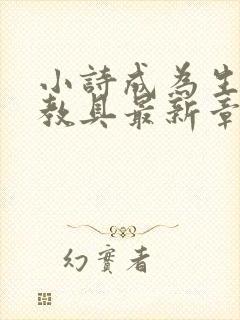 小詩成為生
教具最新章
幻實者